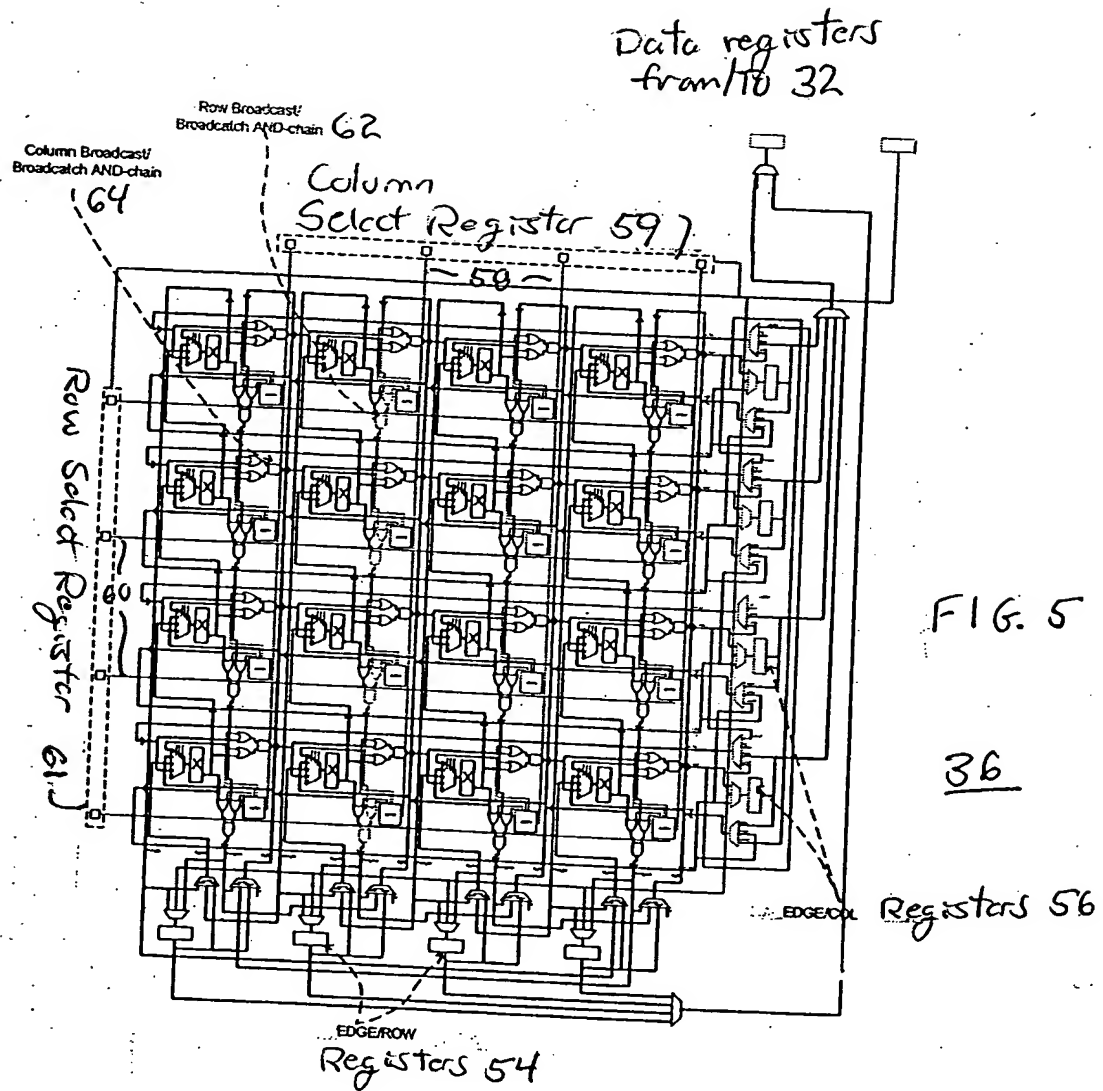 Data registers
from/to 32
Row Broadcast/
Broadcatch AND-chain 62
Column Broadcast/
Broadcatch AND-chain
64
Column
Select Register 59
58
Row Select Register 61
60
FIG. 5
36
EDGE/COL Registers 56
EDGE/ROW
Registers 54